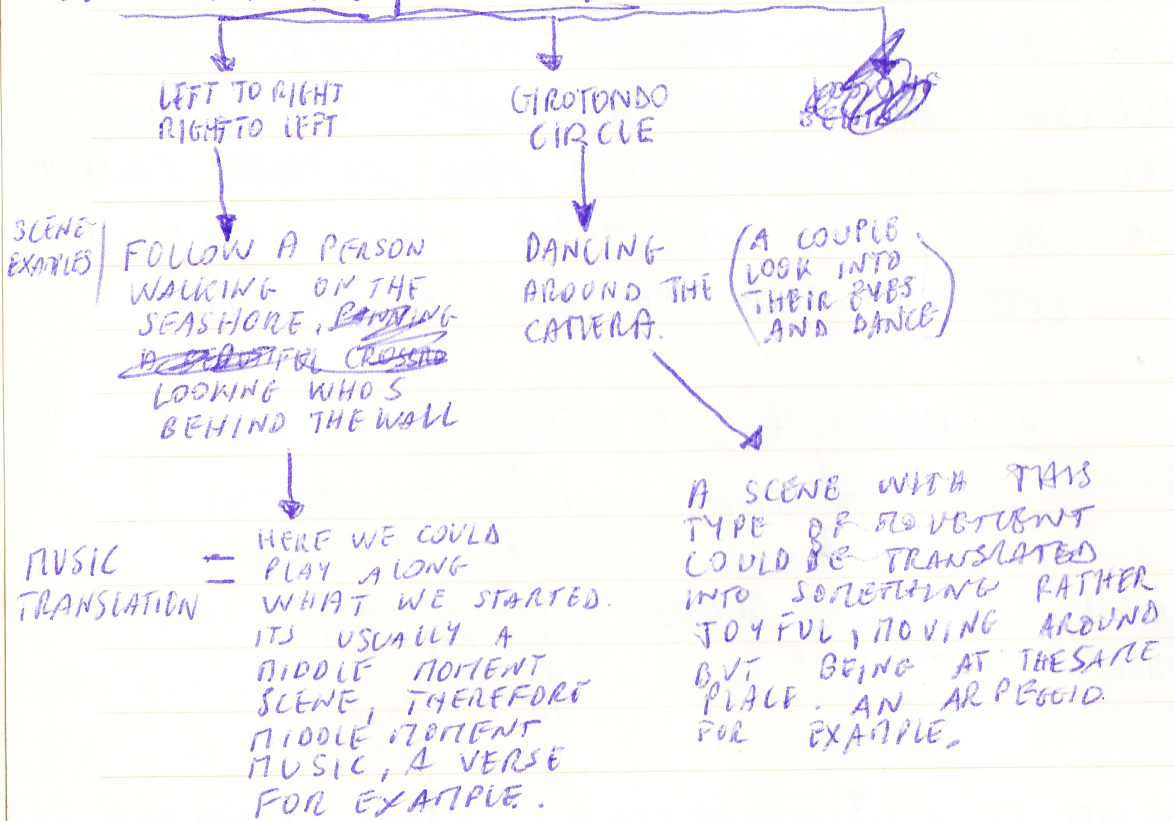 LEFT TO RIGHT
RIGHT TO LEFT
GIROTONDO
CIRCLE
SCENE
EXAMPLES
FOLLOW A PERSON
WALKING ON THE
SEASHORE,
LOOKING WHOS
BEHIND THE WALL
DANCING
AROUND THE
CAMERA.
(A COUPLE
LOOK INTO
THEIR EYES
AND DANCE)
MUSIC
TRANSLATION
=
HERE WE COULD
PLAY ALONG
WHAT WE STARTED.
ITS USUALLY A
MIDDLE MOMENT
SCENE, THEREFORE
MIDDLE MOMENT
MUSIC, A VERSE
FOR EXAMPLE.
A SCENE WITH THIS
TYPE OF MOVEMENT
COULD BE TRANSLATED
INTO SOMETHING RATHER
JOYFUL, MOVING AROUND
BUT BEING AT THE SAME
PLACE. AN ARPEGGIO.
FOR EXAMPLE.